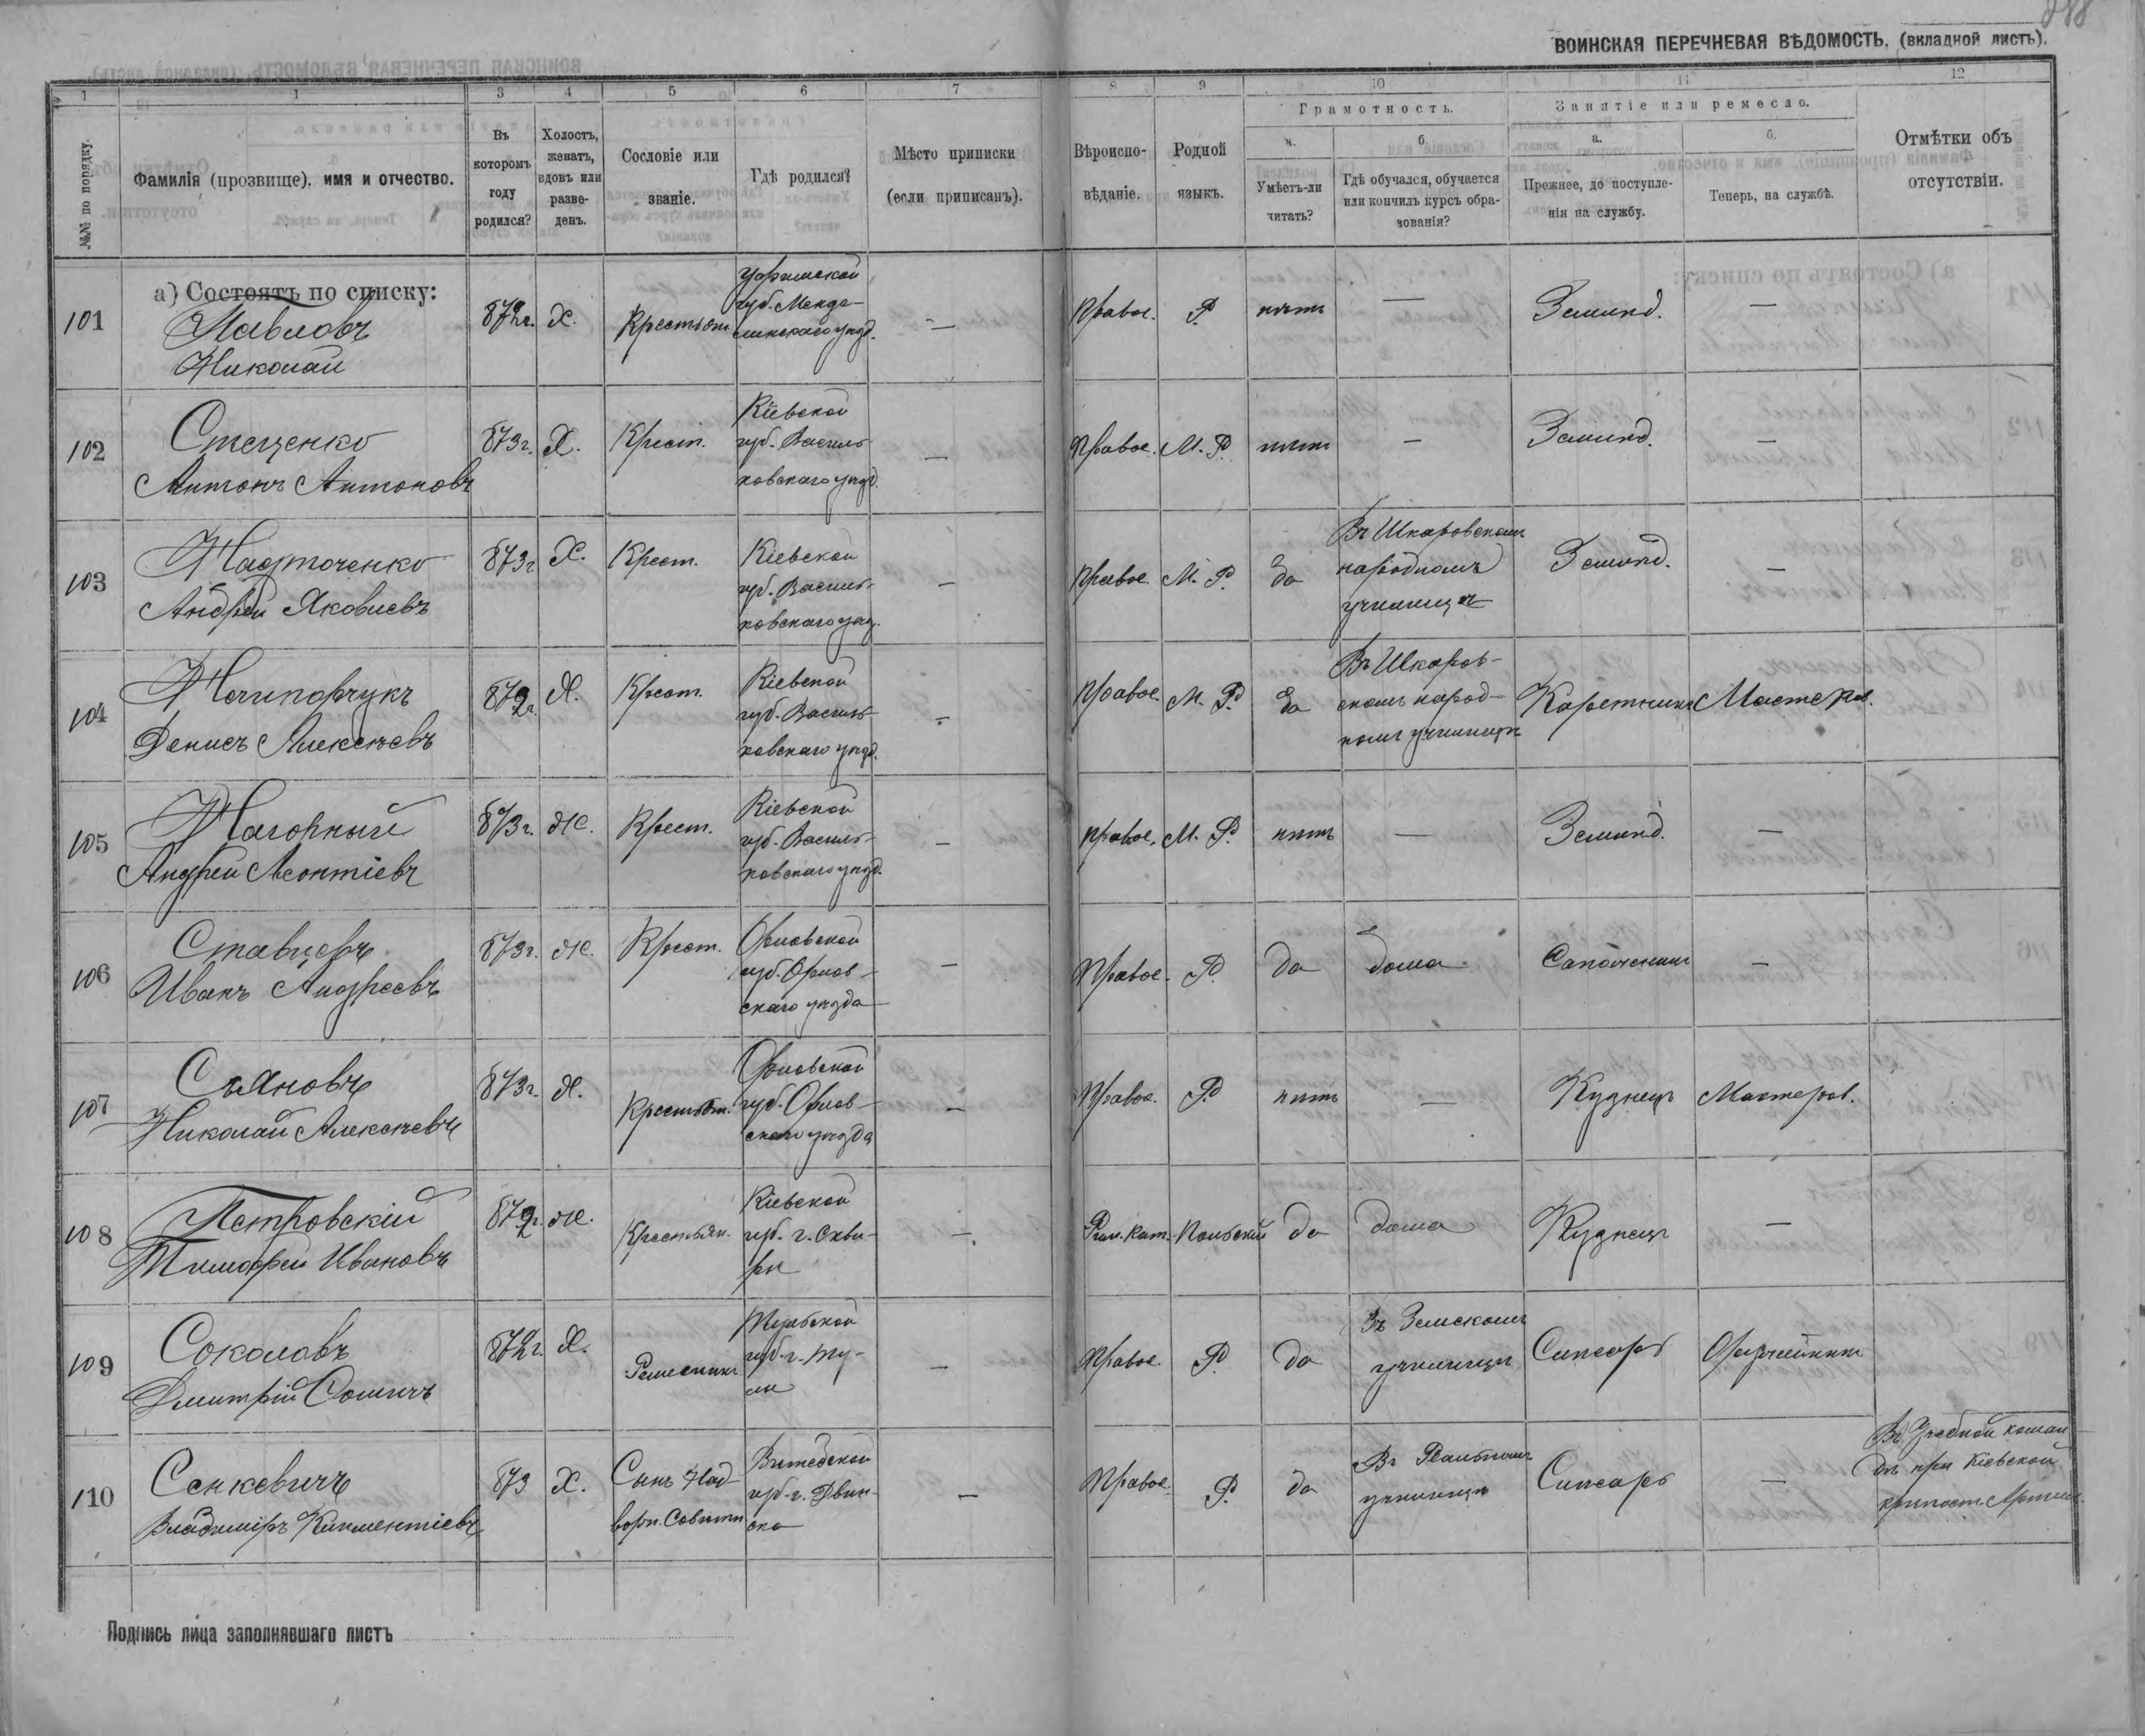 ВОИНСКАЯ ПЕРЕЧНЕВАЯ ВѢДОМОСТЬ, (вкладной листъ).
1 1 3 4 5 6 7 8 9 10 11 12
№№ по порядку.
Фамилія (прозвище), имя и отчество.
Въ которомъ году родился?
Холостъ, женатъ, вдовъ или разве-денъ.
Сословіе или званіе.
Гдѣ родился?
Мѣсто приписки (если приписанъ).
Вѣроиспо-вѣданіе.
Родной языкъ.
Грамотность.
а. Умѣетъ-ли читать?
б. Гдѣ обучался, обучается или кончилъ курсъ обра-зованія?
Занятіе или ремесло.
а. Прежнее, до поступле-нія на службу.
б. Теперь, на службѣ.
Отмѣтки объ отсутствіи.
а) Состоятъ по списку:
101 Павловъ Николай 872г. Х. Крестьян губ. Мензе-линскаго уѣзд. — Правос. Р. нѣтъ — Землед. —
102 Стеценко Антонъ Антоновъ 873г. Х. Крест. Кіевской губ. Василь-ковскаго уѣзд. — Правос. М. Р. нѣтъ — Землед. —
103 Андрей Яковлевъ 873г. Х. Крест. Кіевской губ. Василь-ковскаго уѣзд. — Правос. М. Р. да Въ Шкаровскомъ народномъ училищѣ Землед. —
104 Нечипорчукъ Денисъ Алексѣевъ 872г. Х. Крест. Кіевской губ. Василь-ковскаго уѣзд. — Правос. М. Р. да Въ Шкаров-скомъ народ-номъ училищѣ Каретникъ Мастеров.
105 Нагорный Андрей Леонтіевъ 873г. Ж. Крест. Кіевской губ. Василь-ковскаго уѣзд. — Правос. М. Р. нѣтъ — Землед. —
106 Ставцевъ Иванъ Андреевъ 873г. Ж. Крест. Орловской губ. Орлов-скаго уѣзда — Правос. Р. да дома Сапожникъ —
107 Николай Алексѣевъ 873г. Х. Крестьян. Орловской губ. Орлов-скаго уѣзда — Правос. Р. нѣтъ — Кузнецъ Мастеров.
108 Петровскій Тимофей Ивановъ 872г. Ж. Крестьян. Кіевской губ. г. Скви-ры — Рим. Кат. Польскій да дома Кузнецъ —
109 Соколовъ Дмитрій Фомичъ 872г. Х. Ремеслник Тульской губ. г. Ту-лы — Правос. Р. да Въ Земскомъ училищѣ Слесарь Оружейникъ
110 Сенкевичъ Владиміръ Климентіевъ 873 Х. Сынъ Над-ворн. Совѣтн. Витебской губ. г. Двин-ска — Правос. Р. да Въ Реальномъ училищѣ Слесарь — Въ Учебной коман-дѣ при Кіевской крѣпост. Артил.
Подпись лица заполнявшаго листъ